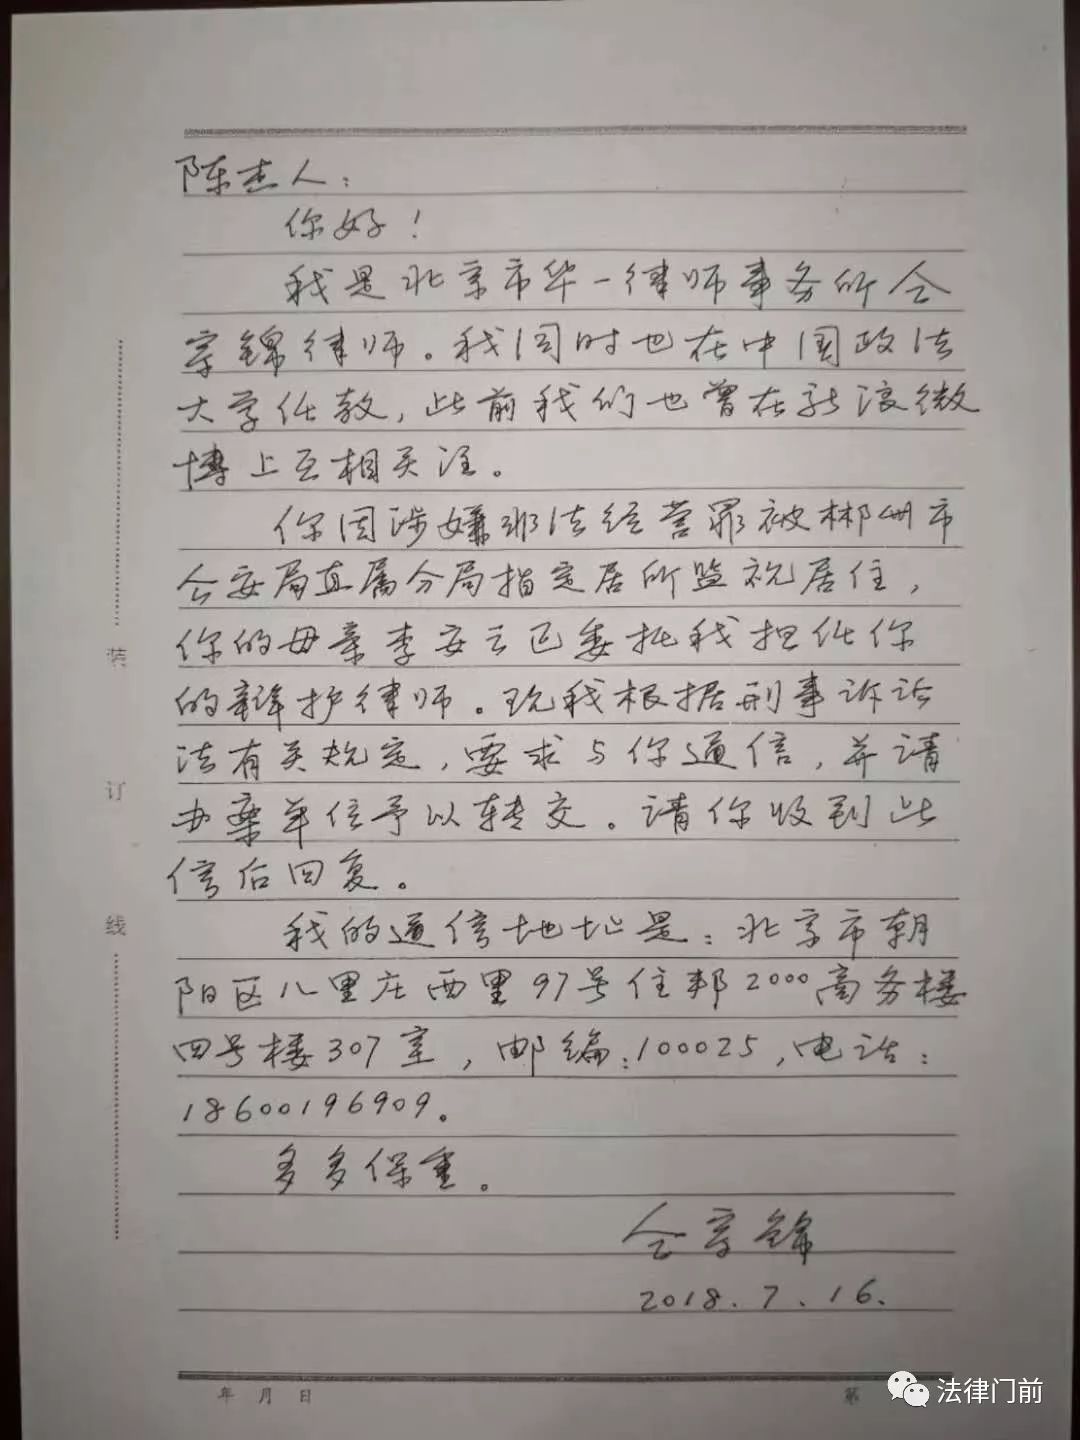 陈杰人：
你好！
我是北京市华一律师事务所仝
宗锦律师。我同时也在中国政法
大学任教，此前我们也曾在新浪微
博上互相关注。
你因涉嫌非法经营罪被郴州市
公安局直属分局指定居所监视居住，
你的母亲李安云已委托我担任你
的辩护律师。现我根据刑事诉讼
法有关规定，要求与你通信，并请
办案单位予以转交。请你收到此
信后回复。
我的通信地址是：北京市朝
阳区八里庄西里97号住邦2000商务楼
四号楼307室，邮编：100025，电话：
18600196909。
多多保重。
仝宗锦
2018.7.16.
装
订
线
年 月 日
第
法律门前